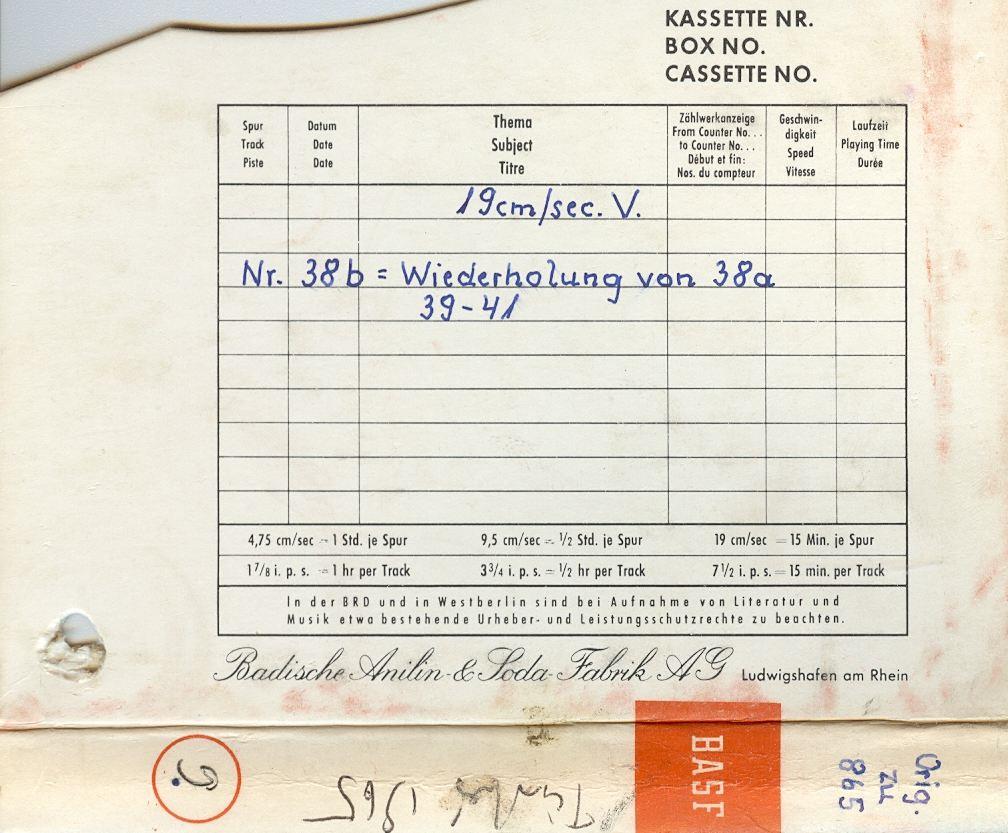 KASSETTE NR.
BOX NO.
CASSETTE NO.
Spur
Track
Piste
Datum
Date
Date
Thema
Subject
Titre
Zählwerkanzeige
From Counter No. . .
to Counter No. . .
Début et fin:
Nos. du compteur
Geschwin-
digkeit
Speed
Vitesse
Laufzeit
Playing Time
Durée
19cm/sec. V.
Nr. 38b = Wiederholung von 38a
39-41
4,75 cm/sec = 1 Std. je Spur
9,5 cm/sec = 1/2 Std. je Spur
19 cm/sec = 15 Min. je Spur
1 7/8 i. p. s. = 1 hr per Track
3 3/4 i. p. s. = 1/2 hr per Track
7 1/2 i. p. s. = 15 min. per Track
In der BRD und in Westberlin sind bei Aufnahme von Literatur und
Musik etwa bestehende Urheber- und Leistungsschutzrechte zu beachten.
Badische Anilin- & Soda-Fabrik AG Ludwigshafen am Rhein
9.
1965
BASF
Orig.
zu
865